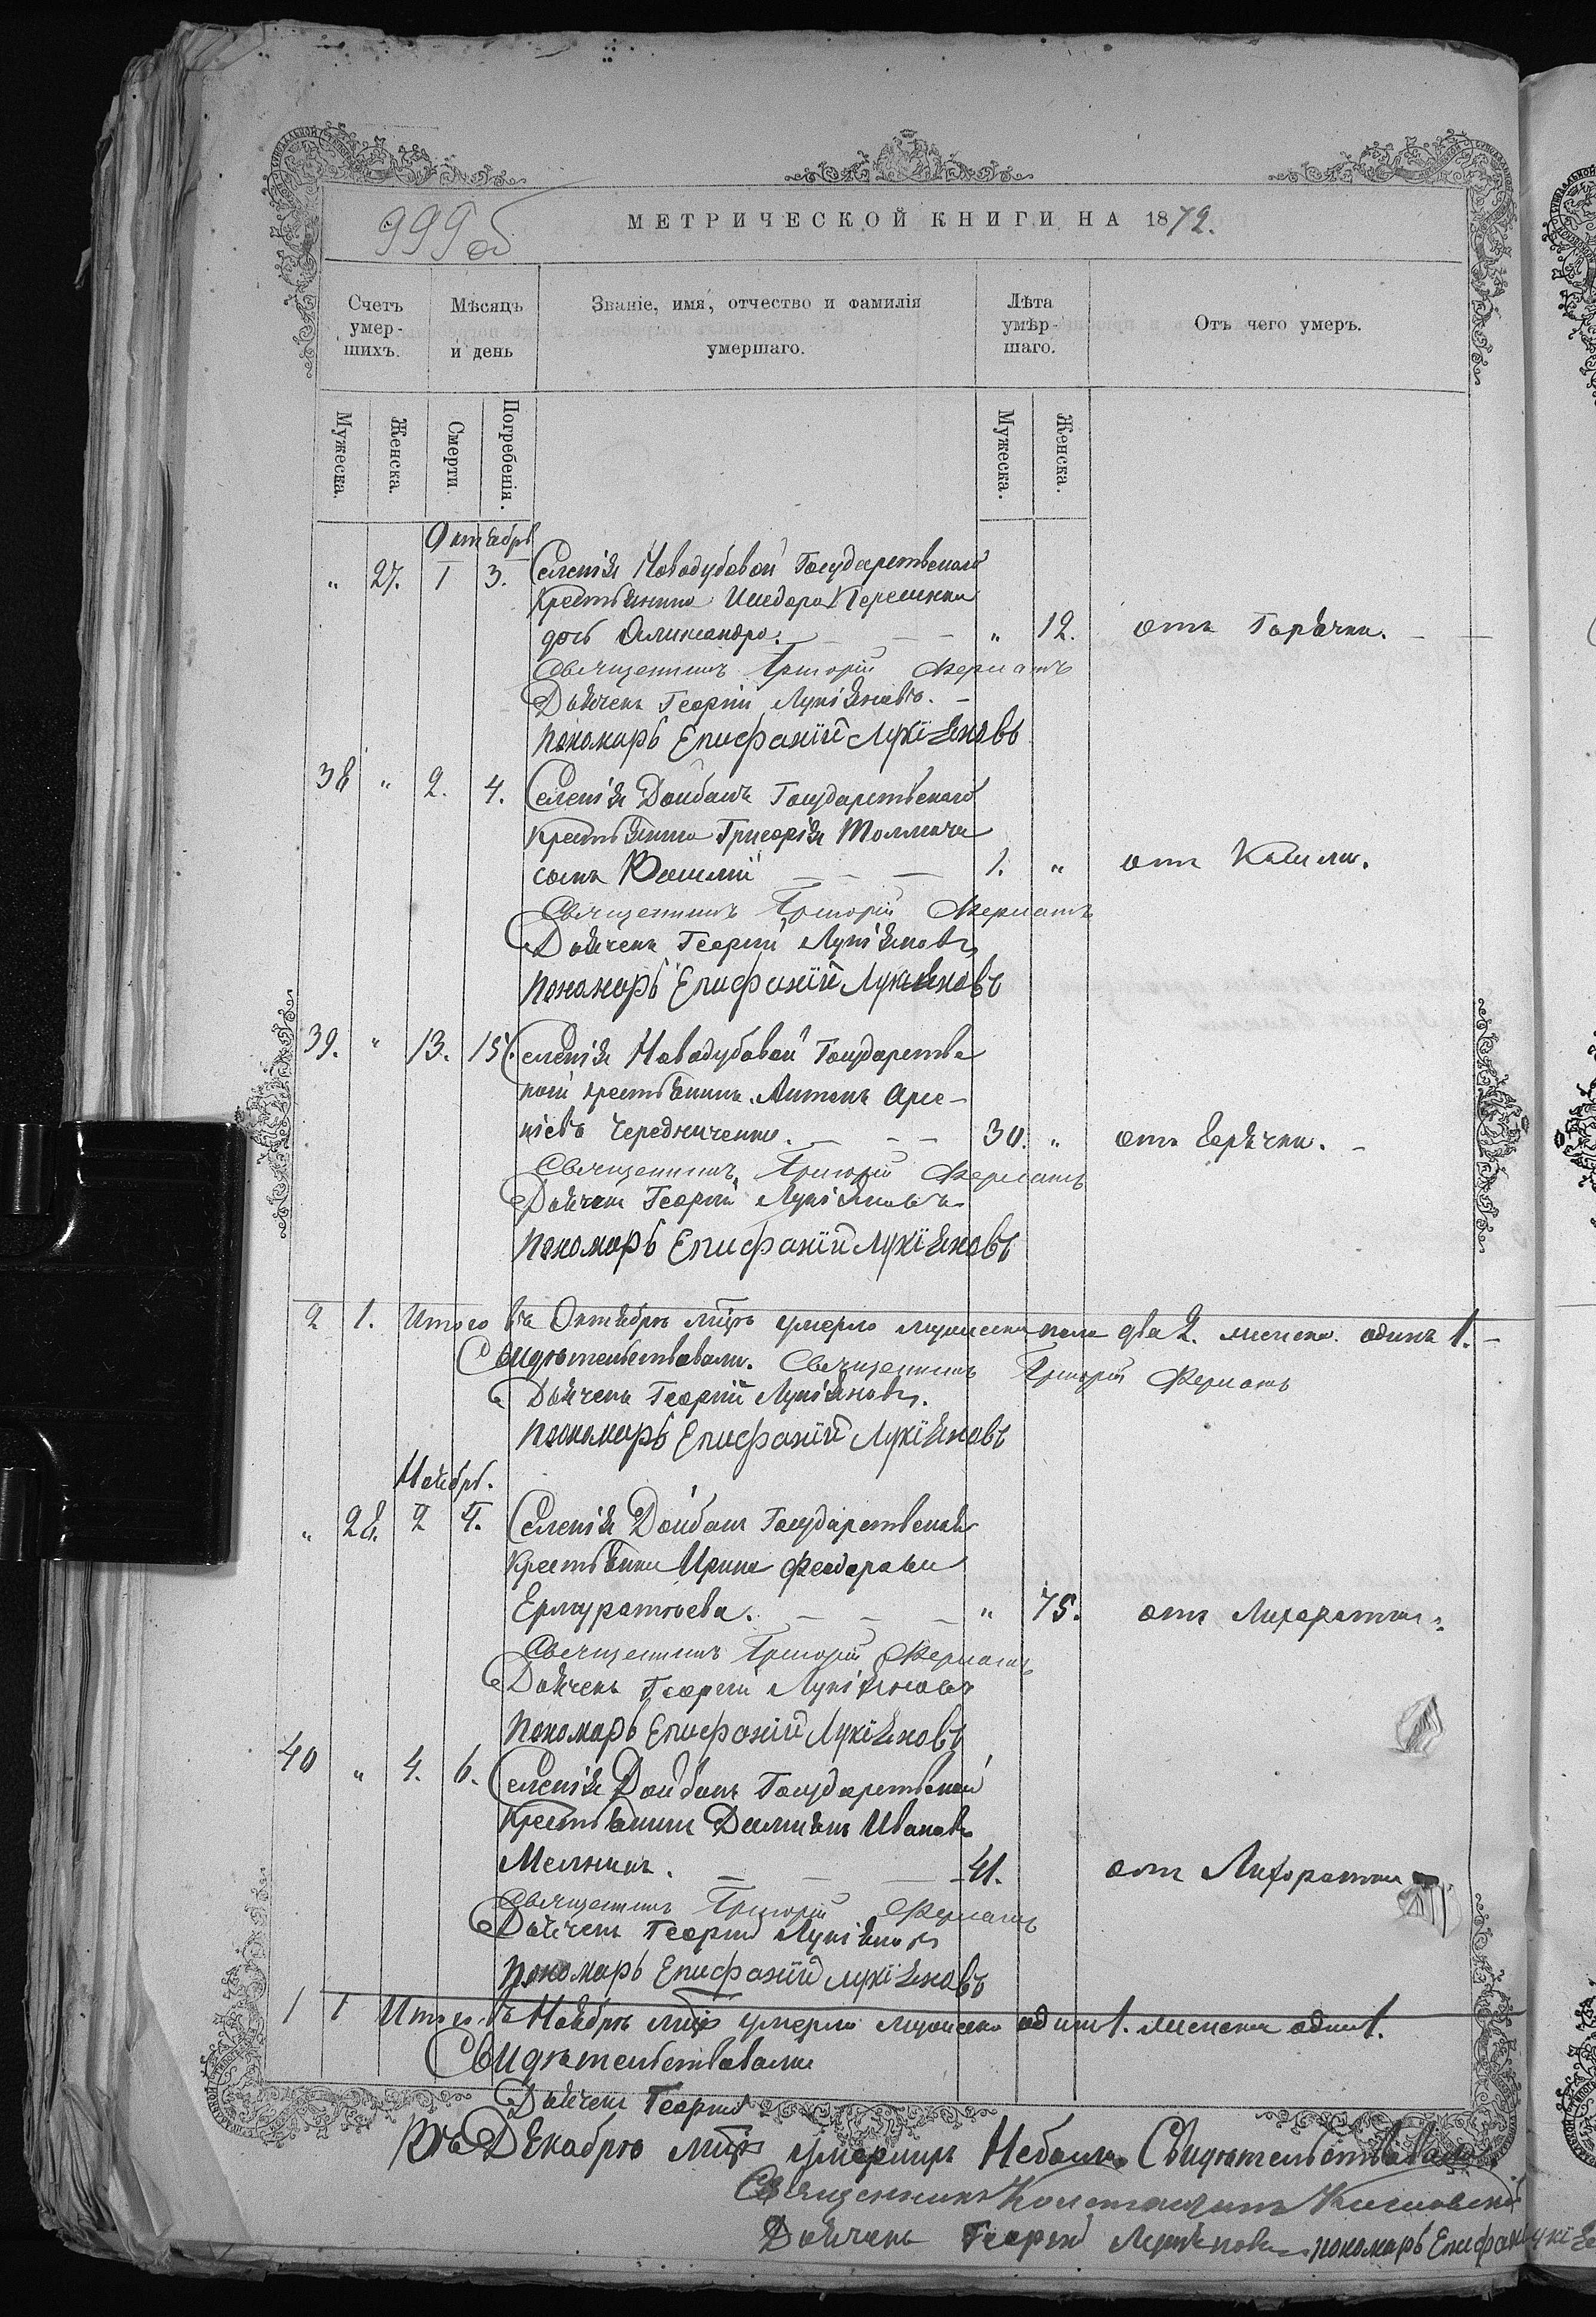 999 об
МЕТРИЧЕСКОЙ КНИГИ НА 1872.
Счетъ умер-шихъ.
Мѣсяцъ и день
Званіе, имя, отчество и фамилія умершаго.
Лѣта умѣр-шаго.
Отъ чего умеръ.
Мужеска.
Женска.
Смерти.
Погребенія.
Мужеска.
Женска.
Октябрь
" 27. 1 3. Селенія Новодубовой Государственаго
крестьянина Исидора
дочь Александра. " 12. отъ Горячки.
Священникъ Григорій
Дьячекъ Георгій Лукіяновъ.
Пономарь Епифаній Лукіяновъ
38 " 2. 4. Селенія Дойбанъ Государственаго
крестьянина Григорія Толмача
сынъ Василій 1. " отъ Кашля.
Священникъ Григорій
Дьячекъ Георгій Лукіяновъ
Пономарь Епифаній Лукіяновъ
39. " 13. 15. Селенія Новодубовой Государстве
ной крестьянинъ Антонъ Арсе-
ніевъ Чередниченко. 30. " отъ Горячки.
Священникъ Григорій
Дьячекъ Георгій Лукіяновъ
Пономарь Епифаній Лукіяновъ
2 1. Итого въ Октябрѣ мцѣ умерло мужеска пола два 2. женска одинъ 1.
Свидѣтельствовали. Священникъ Григорій
Дьячекъ Георгій Лукіяновъ.
Пономарь Епифаній Лукіяновъ
Ноябрь.
" 28. 2 4. Селенія Дойбанъ Государственая
крестьянка Ирина Феодорова
Ермуратьева. " 75. отъ Лихоратки.
Священникъ Григорій
Дьячекъ Георгій Лукіяновъ
Пономарь Епифаній Лукіяновъ
40 " 4. 6. Селенія Дойбанъ Государственой
крестьянинъ Даміянъ Ивановъ
Мельникъ. 41. отъ Лихоратки
Священникъ Григорій
Дьячекъ Георгій Лукіяновъ
Пономарь Епифаній Лукіяновъ
1 1 Итого въ Ноябрѣ мцѣ умерло мужеска одинъ 1. женска одинъ 1.
Свидѣтельствовали
Дьячекъ Георгій
Въ Декабрѣ мцѣ умершихъ Небыло. Свидѣтельствовали
Священникъ Константинъ
Дьячекъ Георгій Лукіяновъ пономарь Епифаній